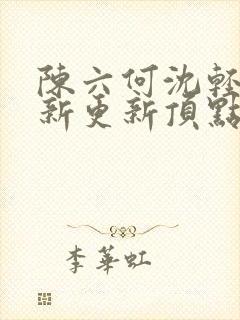 陳六何沈輕
新更新頂點
李華虹